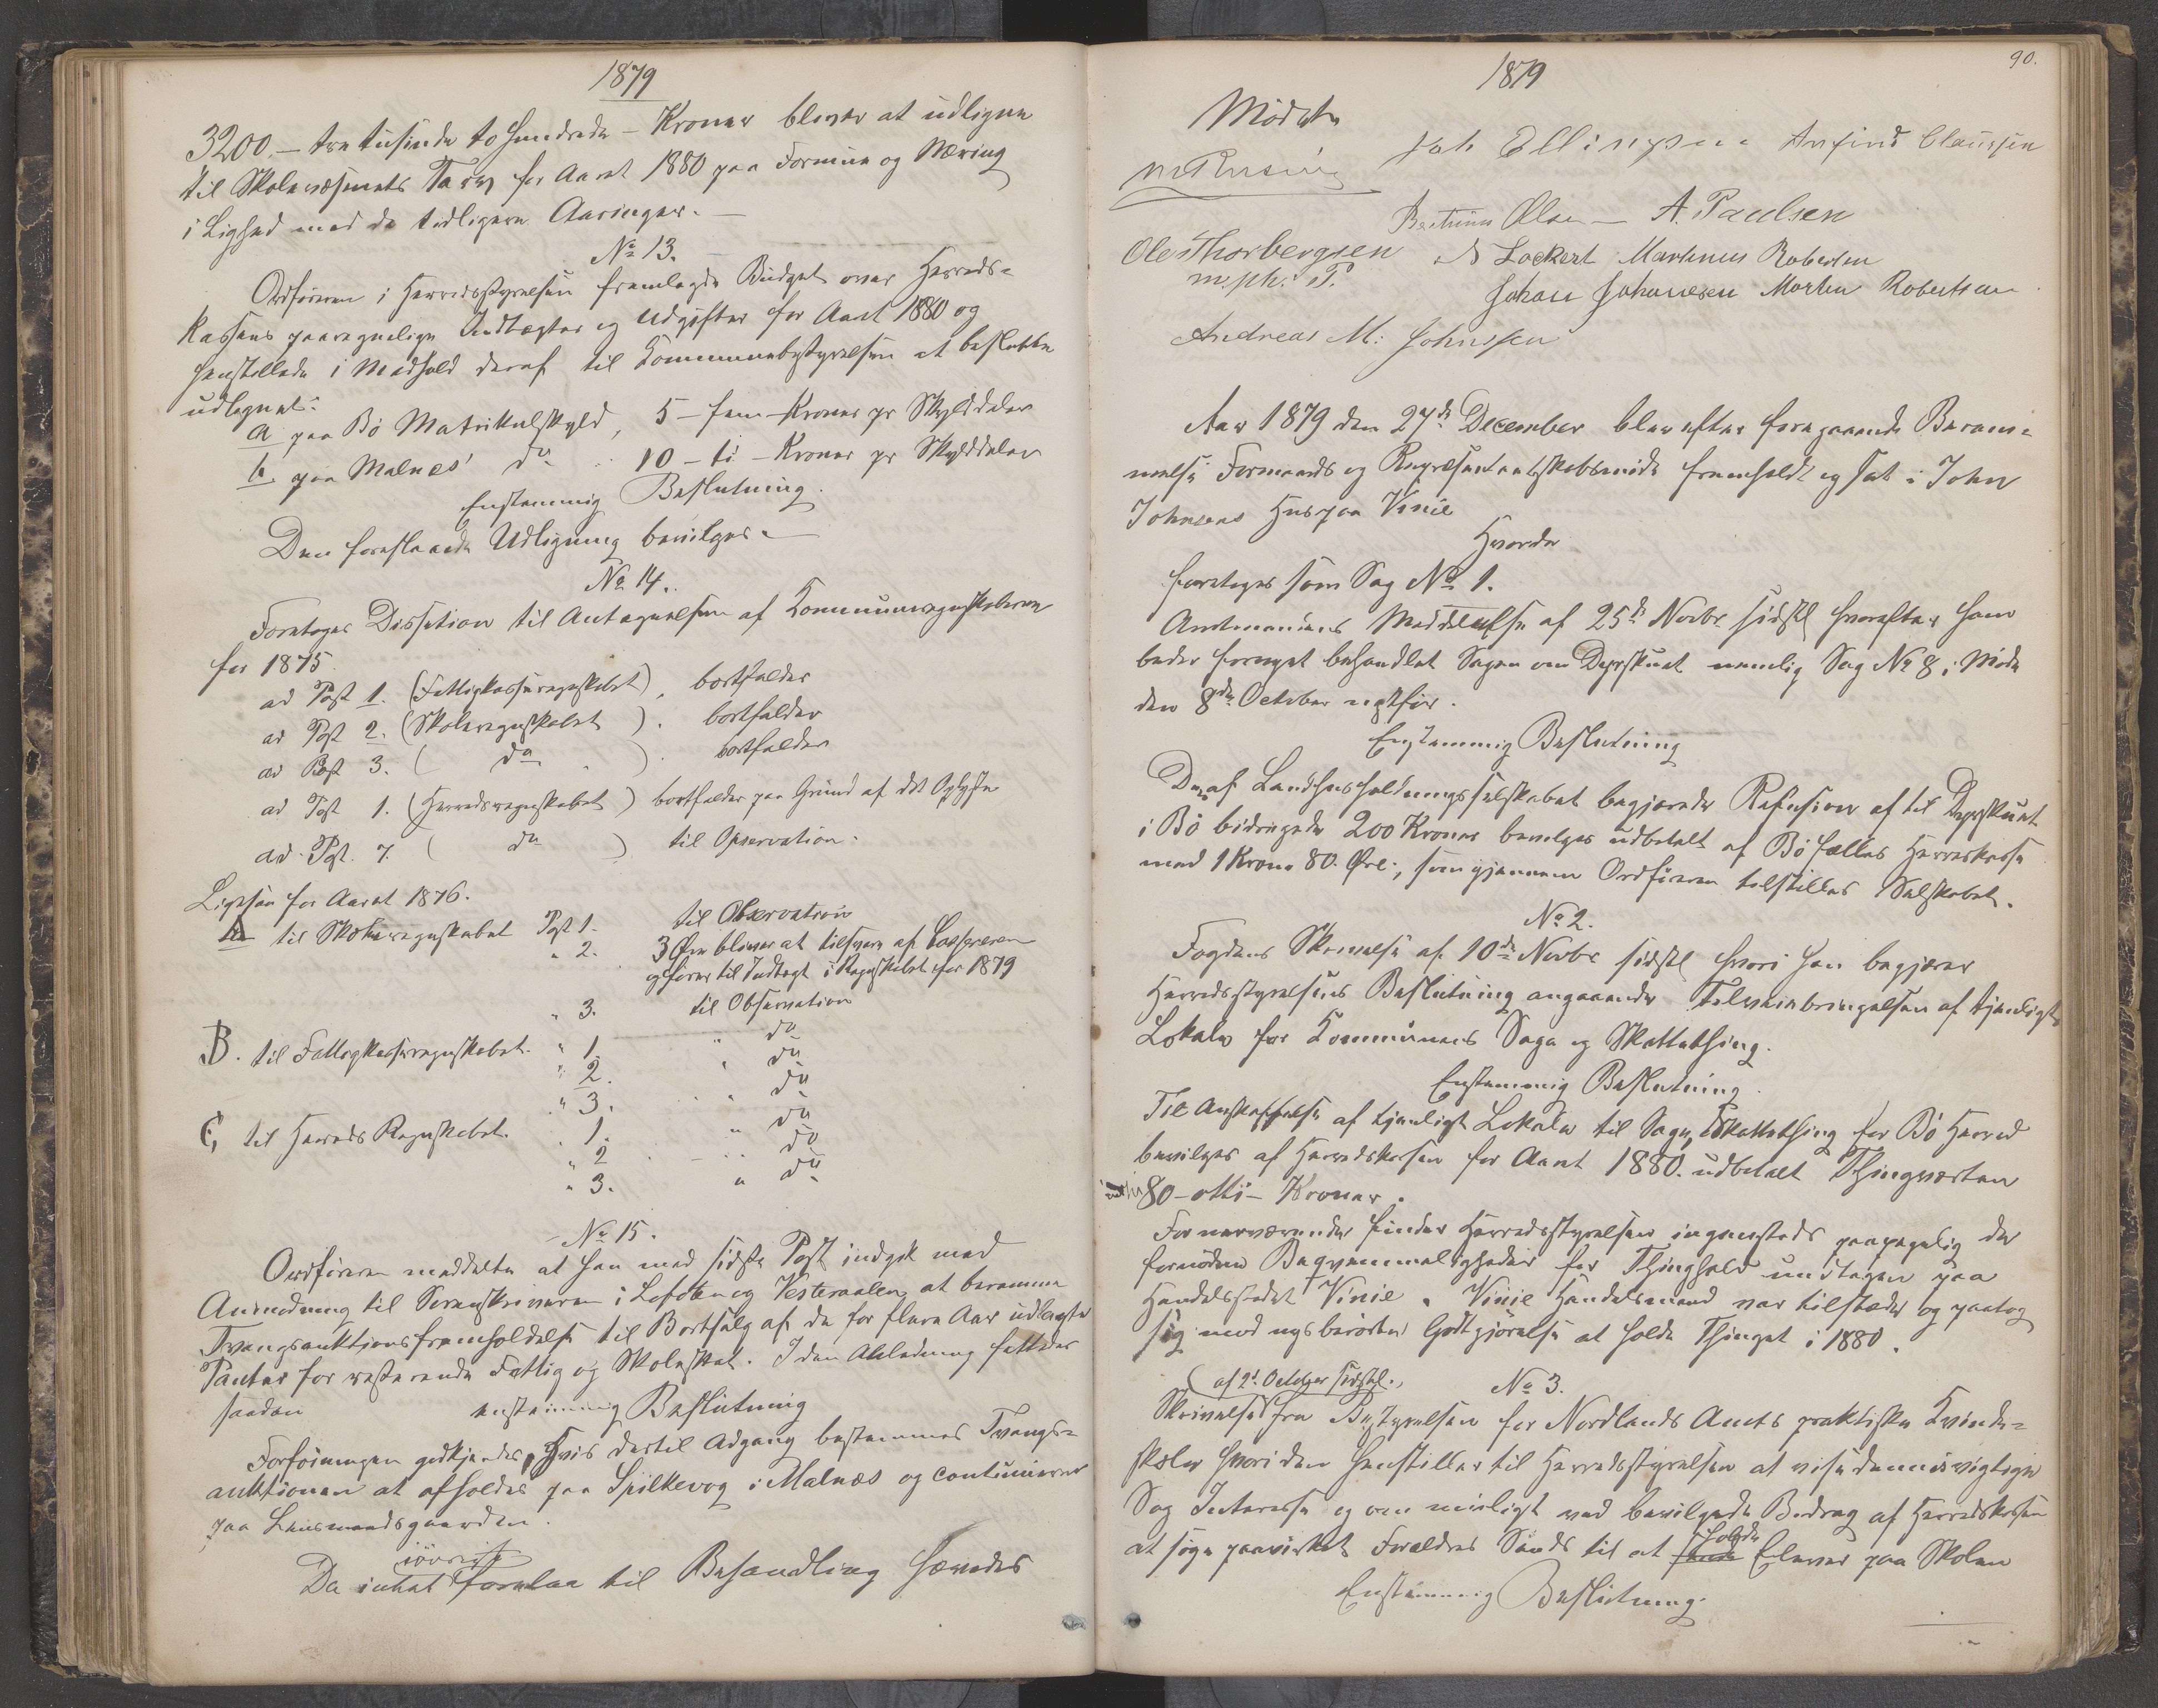 1879
3200,- tre tusinde to Hundrede - Kroner bliver at udligne
til Skolevæsenets Tarv for Aaret 1880 paa Formue og Næring
i Lighed med de tidligere Aaringer. -
No 13.
Ordføreren i Herredsstyrelsen fremlagde Budget over Herreds-
kassens paaregnelige Indtægter og Udgifter for Aaret 1880 og
henstillede i Medhold deraf til Kommunebestyrelsen at beslutte
udlignet:
a paa Bø Matrikulskyld, 5 - fem - Kroner pr Skylddaler
b paa Malnes do 10 - ti - Kroner pr Skylddaler
Enstemmig Beslutning.
Den foreslaaede Udligning bevilges. -
No 14.
Foretoges Decision til Antegnelsen af Kommuneregnskaberne
for 1875
ad Post 1. (Fattigkasseregnskabet), bortfalder
ad Post 2. (Skoleregnskabet). bortfalder
ad Post 3. ( do ). bortfalder
ad Post 1. (Herredsregnskabet) bortfalder paa Grund af det Oplyste
ad Post. 7. ( do ) til Opservation.
Ligesaa for Aaret 1876.
A til Skoleregnskabet Post 1. til Observation
" 2. 3 Øre bliver at tilsvare af Kassereren
og føres til Indtægt i Regnskabet for 1879
" 3. til Observation
B. til Fattigkasseregnskabet. " 1. " do
" 2. " do
" 3. " do
C, til Herreds Regnskabet. " 1. " do
" 2 " do
" 3. " do
No 15.
Ordføreren meddelte at han med sidste Post indgik med
Anmodning til Sorenskriveren i Lofoten og Vesteraalen, at beramme
Tvangsauktionsfremholdelse til Bortsalg af de for flere Aar udlagte
Panter for resterende Fattig og Skoleskat. I den Anledning fattedes
saadan enstemmig Beslutning
Forføiningen godkjendes, Hvis dertil Adgang bestemmes Tvangs-
auktionen at afholdes paa Spilkevog i Malnæs og continueres
paa Lensmandsgaarden.
iøvrigt
Da intet forelaa til Behandling hævedes
1879
90.
Mødet
Joh Ellingsen Anfind Claussen
M Rusnig
Bertinus Olsen - A. Paulsen
Ole Thorbergsen
m. ph: P.
N Lockert Martinus Robertsen
Johan Johannesen Morten Robertsen
Andreas M: Johnssen
Aar 1879 den 27de December blev efter foregaaende Beram-
melse Formands og Repræsentantskabsmøde fremholdt og sat i John
Johnsens Hus paa Vinie
Hvorda
foretoges som Sag No 1.
Amtmandens Meddelelse af 25de Novbr sidstl hvorefter han
beder fornyet behandlet Sagen om Dyrskuet nemlig Sag No 8 i Møde
den 8de October nestfor.
Enstemmig Beslutning
Den af Landhusholdningsselskabet begjærede Refusion af til Dyrskuet
i Bø bidragede 200 Kroner bevilges udbetalt af Bø fælles Herreskasse
med 1 Krone 80. Øre., som gjennem Ordføreren tilstilles Selskabet.
No 2.
Fogdens Skrivelse af 10de Novbr sidstl hvori han begjærer
Herredsstyrelsens Beslutning angaaende Tilveiebringelsen af tjenligt
Lokale for Kommunens Sage og Skattething.
Enstemmig Beslutning.
Til Anskaffelse af tjenligt Lokale til Sage, & Skattething for Bø Herred
bevilges af Herredskassen for Aaret 1880. udbetalt Thingværten
80 - otti - Kroner.
For nærværende finder Herredsstyrelsen ingensteds paapegelig de
fornødne Beqvemmeligheder for Thinghold undtagen paa
Handelsstedet Vinie. Vinie Handelsmand var tilstede og paatog
sig mod nysberørte Godtgjørelse at holde Thinget i 1880.
af 2d October sidstl.,
No 3.
Skrivelse fra Bestyrelsen for Nordlands Amts praktiske Kvinde-
skole hvori den henstiller til Herredsstyrelsen at vise denne vigtige
Sag Interesse og om muligt ved bevilgede Bidrag af Herredskassen
at søge paavirket Forældres Sands til at holde Elever paa Skolen
Enstemmig Beslutning.